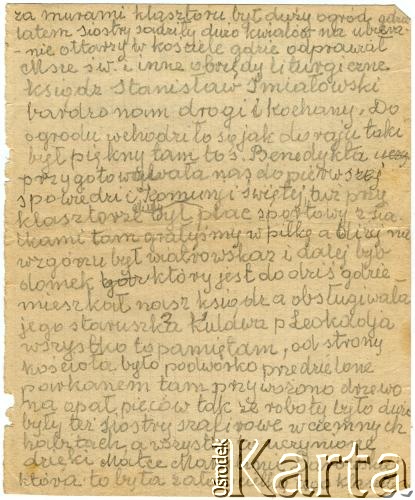 za murami klasztoru był duży ogród gdzie
latem siostry sadziły dużo kwiatów na ubiera-
-nie ołtarzy w kościele gdzie odprawiał
Msze św. i inne obrzędy liturgiczne
ksiądz Stanisław Śmiałowski
bardzo nam drogi i kochany. Do
ogrodu wchodziło się jak do raju taki
był piękny tam to s. Benedykta
przygotowywała nas do pierwszej
spowiedzi i komuni świętej tuż przy
klasztorze był plac sportowy z sia-
tkami tam grałyśmy w piłkę a bliżej na
wzgórzu był wiatrowskaz i dalej był
domek który jest do dziś gdzie
mieszkał nasz ksiądz a obsługiwała
jego staruszka p Leokadja
wszystko to pamiętam, od strony
kościoła było podwórko przedzielone
parkanem tam przywożono drzewo
na opał pieców tak że roboty było dużo
były też siostry szafirowe w ciemnych
habitach, a wszystko
dzięki Matce
która to była
Ośrodek Karta